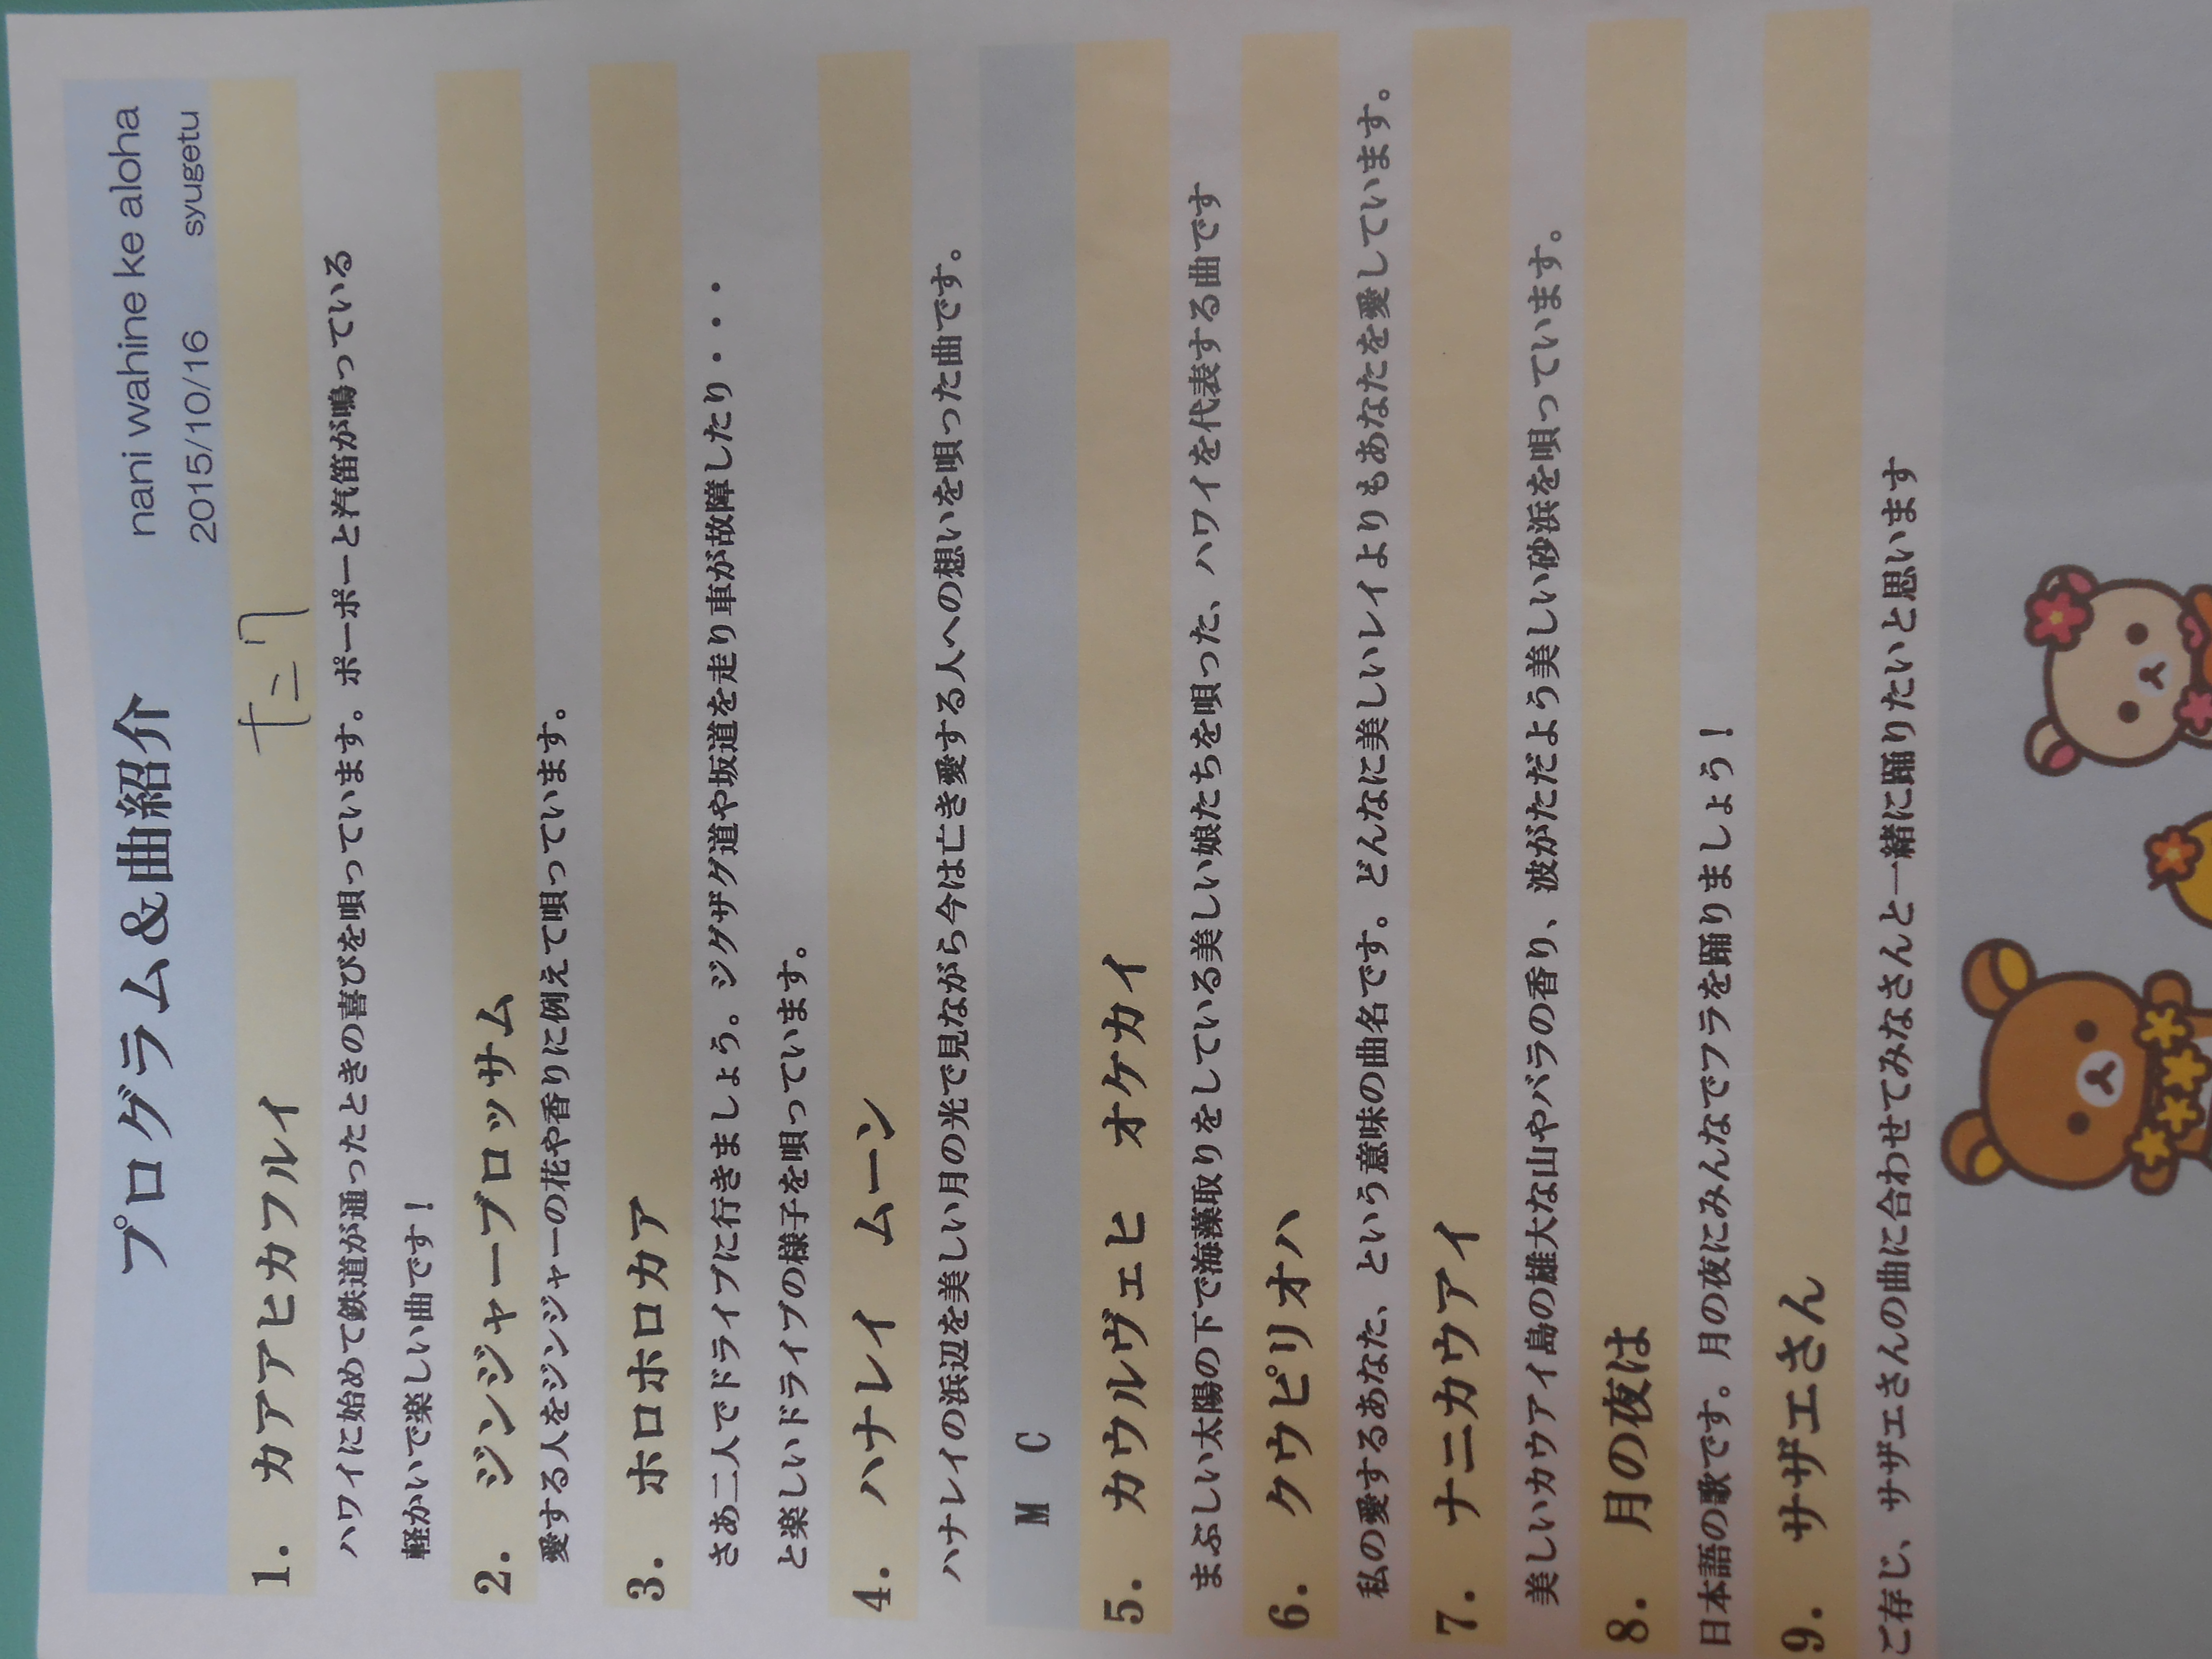 プログラム&曲紹介
nani wahine ke aloha
2015/10/16 syugetu
1. カアアヒカフルイ
ハワイに始めて鉄道が通ったときの喜びを唄っています。ポーポーと汽笛が鳴っている
軽かいで楽しい曲です!
2. ジンジャーブロッサム
愛する人をジンジャーの花や香りに例えて唄っています。
3. ホロホロカア
さあ二人でドライブに行きましょう。ジグザグ道や坂道を走り車が故障したり・・・
と楽しいドライブの様子を唄っています。
4. ハナレイ ムーン
ハナレイの浜辺を美しい月の光で見ながら今は亡き愛する人への想いを唄った曲です。
M C
5. カウルヴェヒ オケカイ
まぶしい太陽の下で海藻取りをしている美しい娘たちを唄った、ハワイを代表する曲です
6. クウピリオハ
私の愛するあなた、という意味の曲名です。どんなに美しいレイよりもあなたを愛しています。
7. ナニカウアイ
美しいカウアイ島の雄大な山やバラの香り、波がただよう美しい砂浜を唄っています。
8. 月の夜は
日本語の歌です。月の夜にみんなでフラを踊りましょう!
9. サザエさん
ご存じ、サザエさんの曲に合わせてみなさんと一緒に踊りたいと思います